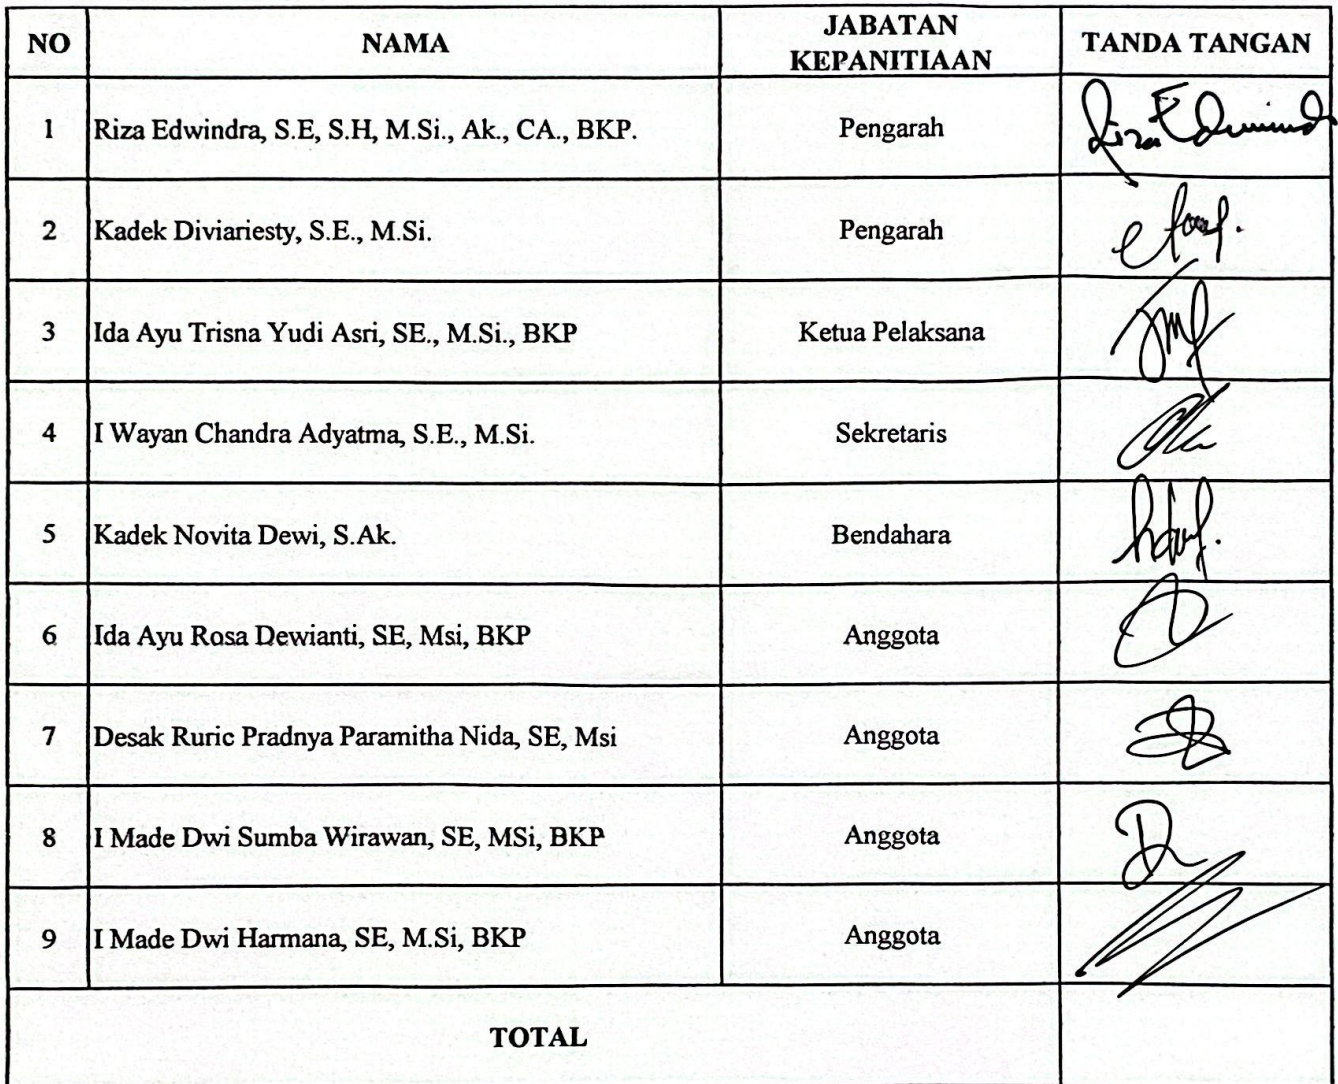 NO NAMA JABATAN KEPANITIAAN TANDA TANGAN
1 Riza Edwindra, S.E, S.H, M.Si., Ak., CA., BKP. Pengarah Riza Edwindra
2 Kadek Diviariesty, S.E., M.Si. Pengarah
3 Ida Ayu Trisna Yudi Asri, SE., M.Si., BKP Ketua Pelaksana
4 I Wayan Chandra Adyatma, S.E., M.Si. Sekretaris
5 Kadek Novita Dewi, S.Ak. Bendahara
6 Ida Ayu Rosa Dewianti, SE, Msi, BKP Anggota
7 Desak Ruric Pradnya Paramitha Nida, SE, Msi Anggota
8 I Made Dwi Sumba Wirawan, SE, MSi, BKP Anggota
9 I Made Dwi Harmana, SE, M.Si, BKP Anggota
TOTAL